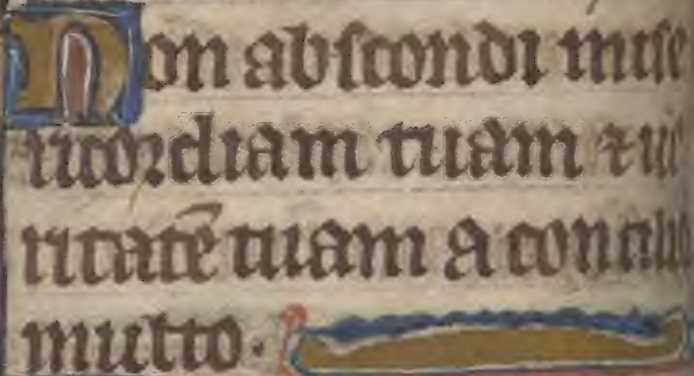 Non abscondi mise
ricordiam tuam ⁊ ue
ritatē tuam a concilio
multo.